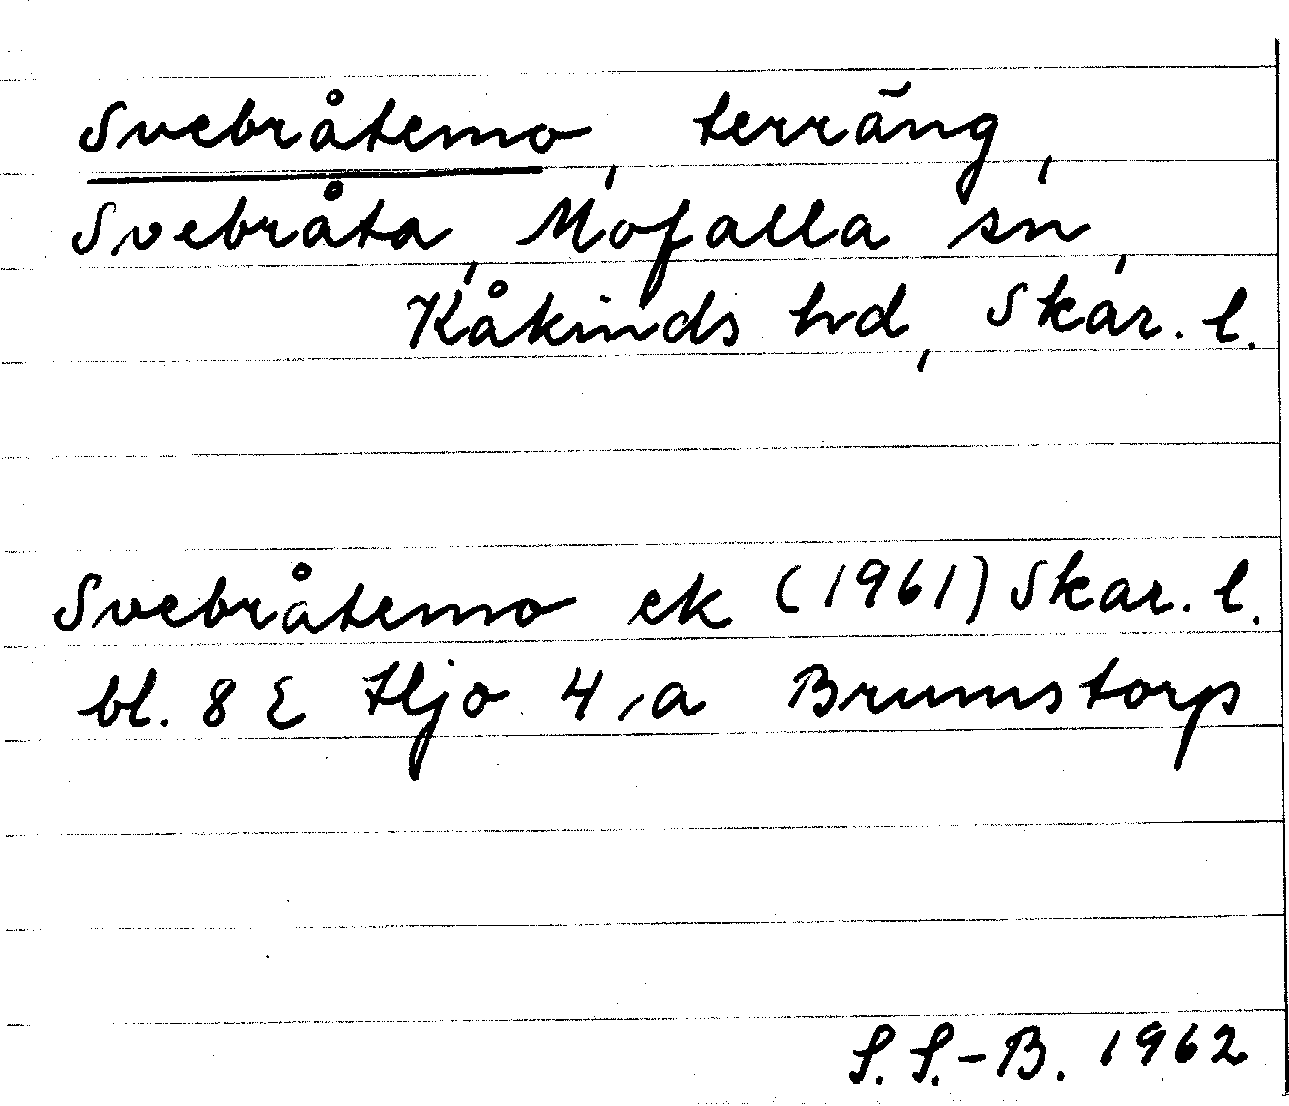 Svebråtemo, terräng,
Svebråta, Mofalla sn,
Kåkinds hd, Skar. l.
Svebråtemo ek (1961) Skar. l.
bl. 8 E Hjo 4, a Brumstorp
S. S.-B. 1962